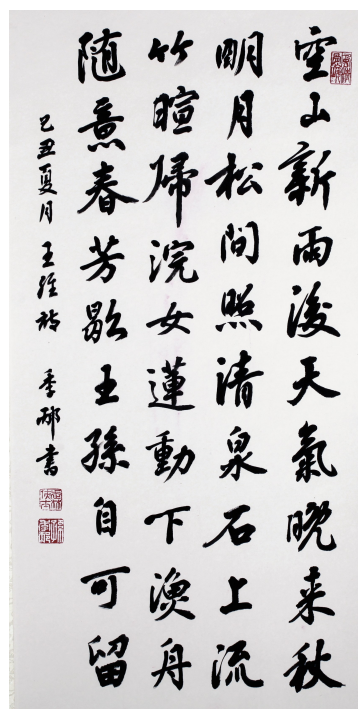 空山新雨後天氣晚来秋
明月松間照清泉石上流
竹暄歸浣女蓮動下漁舟
随意春芳歇王孫自可留
己丑夏月 王維詩 季 書